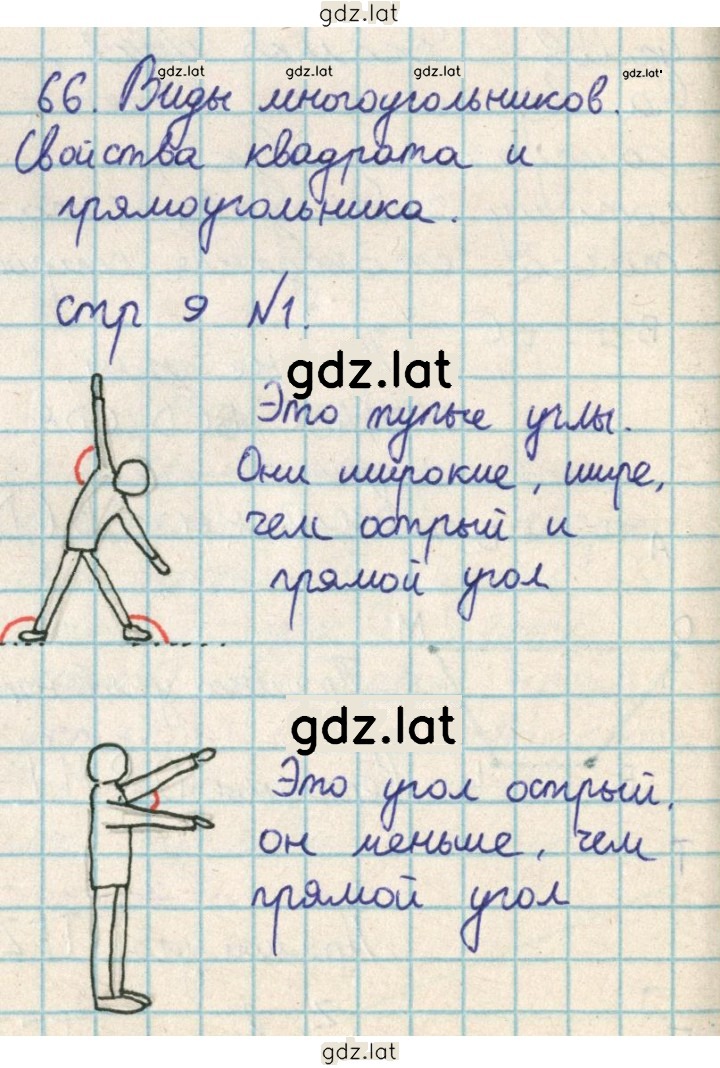 gdz.lat
gdz.lat gdz.lat gdz.lat gdz.lat
66. Виды многоугольников.
Свойства квадрата и
прямоугольника.
стр 9 №1.
gdz.lat
Это тупые углы.
Они широкие, шире,
чем острый и
прямой угол
gdz.lat
Это угол острый,
он меньше, чем
прямой угол
gdz.lat